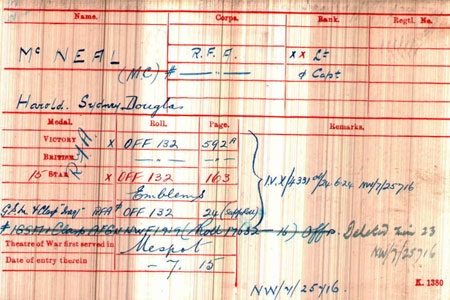 Name. Corps. Rank. Regtl. No.
Mc NEAL R.F.A. x x Lt
(MC) # — " — ø Capt
Harold Sydney Douglas
Medal. Roll. Page. Remarks.
VICTORY x OFF 132 592A
BRITISH — " — — " —
R.F.A.
15 STAR x OFF 132 163
I.V.X/4331 24.6.24 NW/7/25716
Emblems
G.S.M & Clasp "Iraq" RFA # OFF 132 24
# IGSM & Clasp AFGN NWF 1919 (Roll Off
Deleted 23
NW/7/25716
Theatre of War first served in Mespot
Date of entry therein — 7. 15
NW/7/25716.
K. 1380